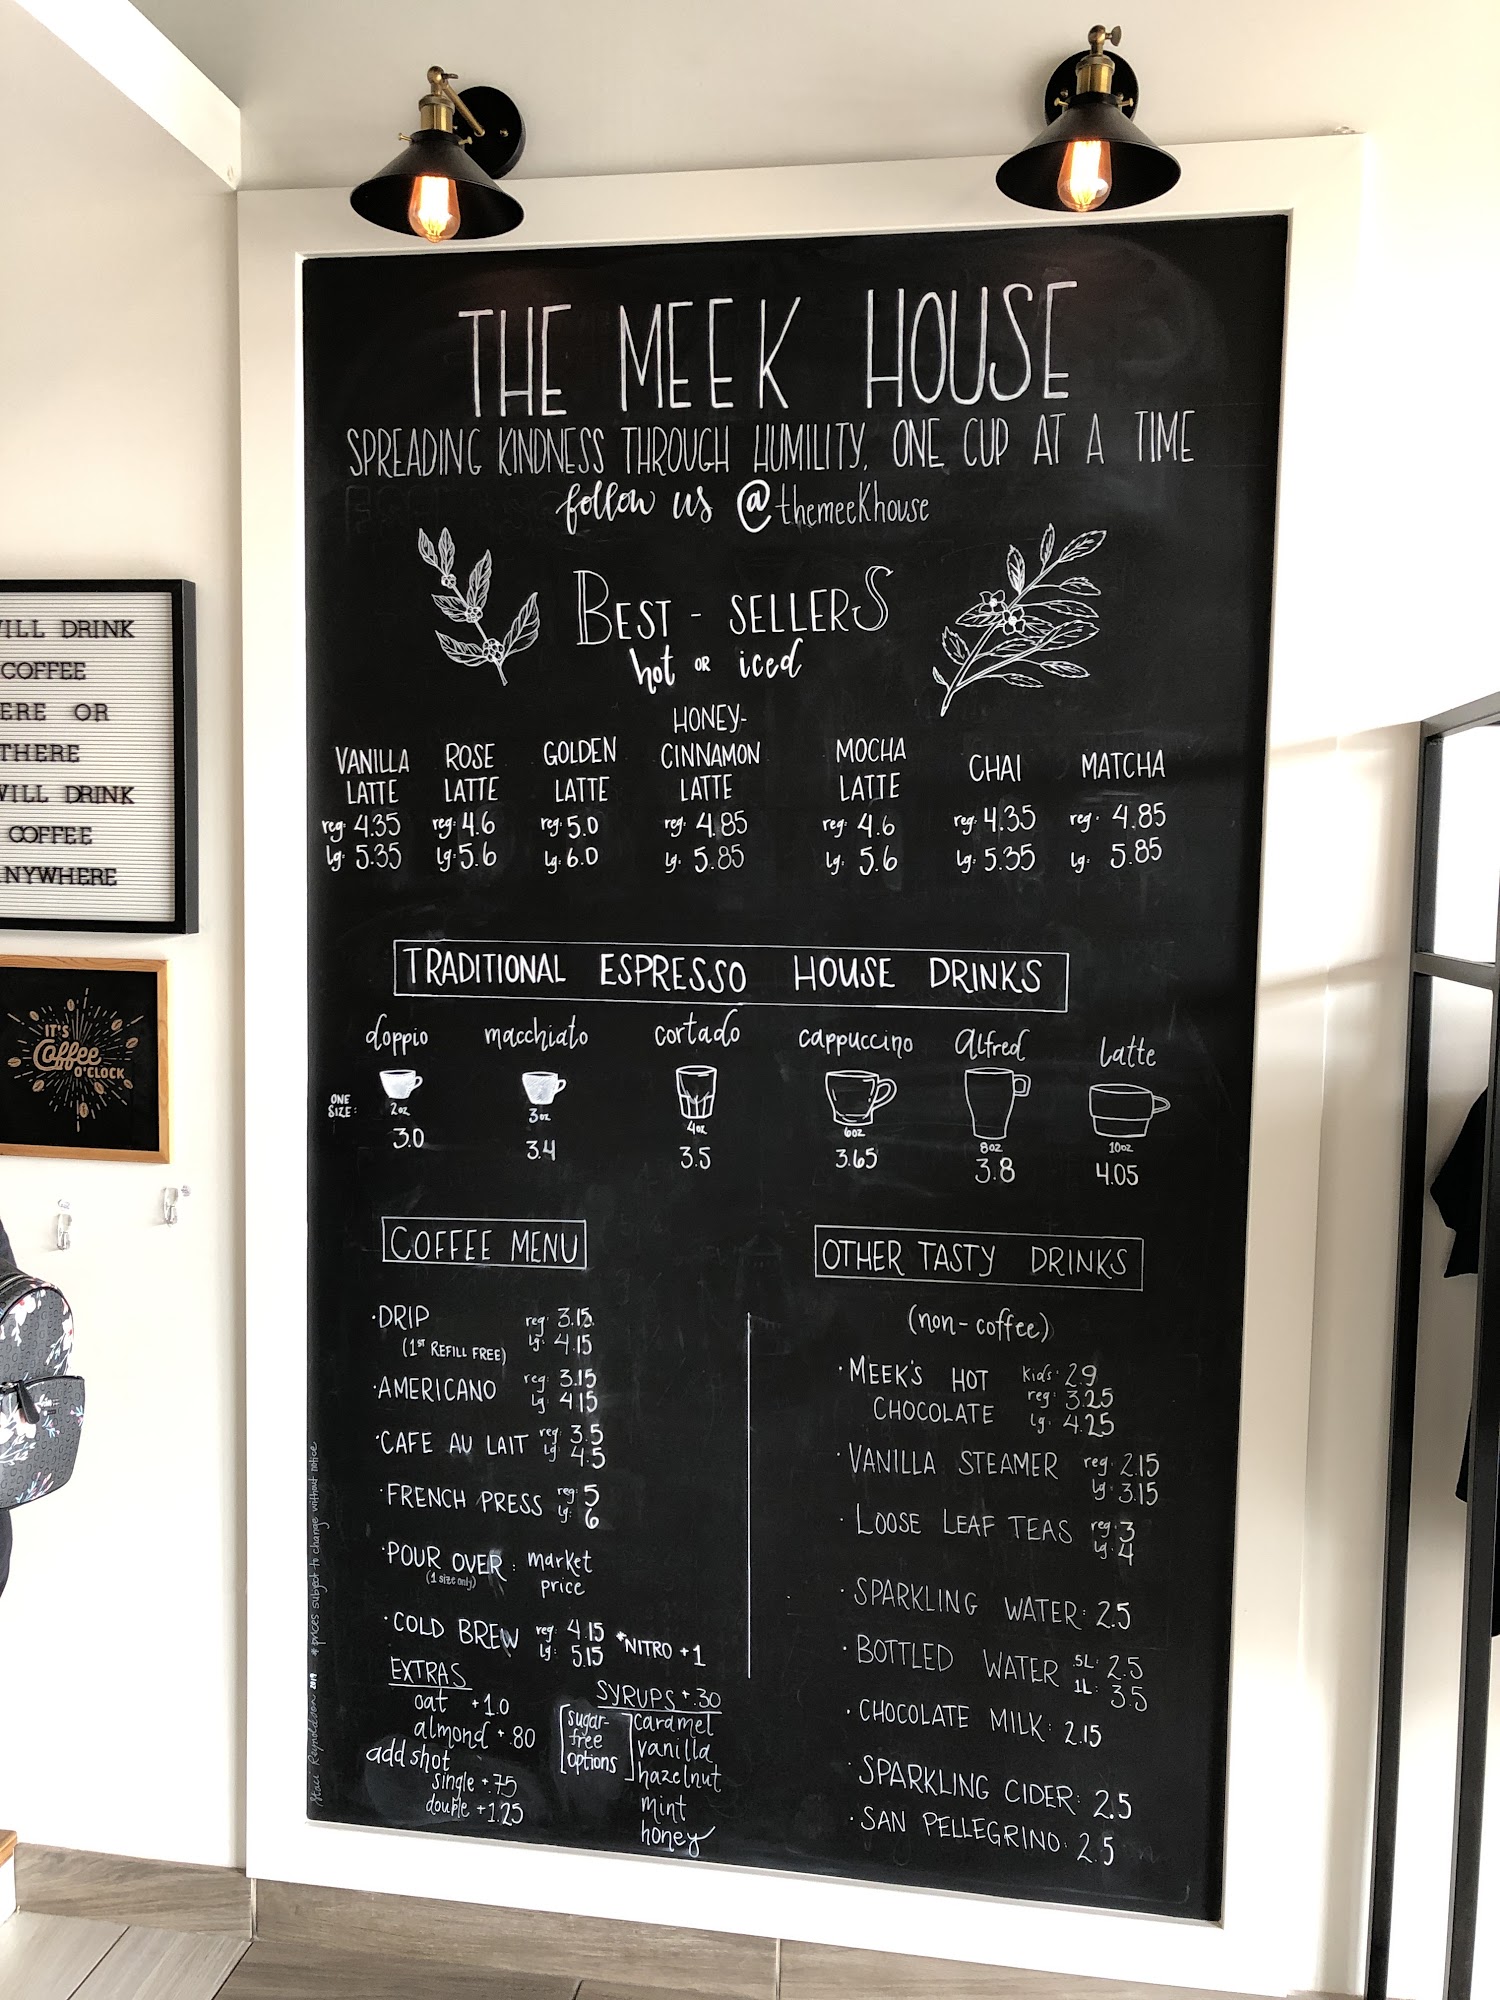 THE MEEK HOUSE
SPREADING KINDNESS THROUGH HUMILITY, ONE CUP AT A TIME
follow us @themeekhouse
BEST-SELLERS
hot or iced
VANILLA LATTE
reg: 4.35
lg: 5.35
ROSE LATTE
reg: 4.6
lg: 5.6
GOLDEN LATTE
reg: 5.0
lg: 6.0
HONEY-
CINNAMON
LATTE
reg: 4.85
lg: 5.85
MOCHA LATTE
reg: 4.6
lg: 5.6
CHAI
reg: 4.35
lg: 5.35
MATCHA
reg: 4.85
lg: 5.85
TRADITIONAL ESPRESSO HOUSE DRINKS
ONE SIZE:
doppio
2oz
3.0
macchiato
3oz
3.4
cortado
4oz
3.5
cappuccino
6oz
3.65
Alfred
8oz
3.8
latte
10oz
4.05
COFFEE MENU
·DRIP reg: 3.15
(1ST REFILL FREE) lg: 4.15
·AMERICANO reg: 3.15
lg: 4.15
·CAFE AU LAIT reg: 3.5
lg: 4.5
·FRENCH PRESS reg: 5
lg: 6
·POUR OVER: market
(1 size only) price
·COLD BREW reg: 4.15 *NITRO +1
lg: 5.15
EXTRAS
oat +1.0
almond +.80
add shot
single +.75
double +1.25
SYRUPS +.30
[sugar-free options]
caramel
vanilla
hazelnut
mint
honey
OTHER TASTY DRINKS
(non-coffee)
·MEEK'S HOT CHOCOLATE kids: 2.9
reg: 3.25
lg: 4.25
·VANILLA STEAMER reg: 2.15
lg: 3.15
·LOOSE LEAF TEAS reg: 3
lg: 4
·SPARKLING WATER: 2.5
·BOTTLED WATER .5L: 2.5
1L: 3.5
·CHOCOLATE MILK: 2.15
·SPARKLING CIDER: 2.5
·SAN PELLEGRINO: 2.5
Staci Reynoldson 2019 *prices subject to change without notice
WILL DRINK
COFFEE
ERE OR
THERE
WILL DRINK
COFFEE
NYWHERE
IT'S
Coffee
O'CLOCK